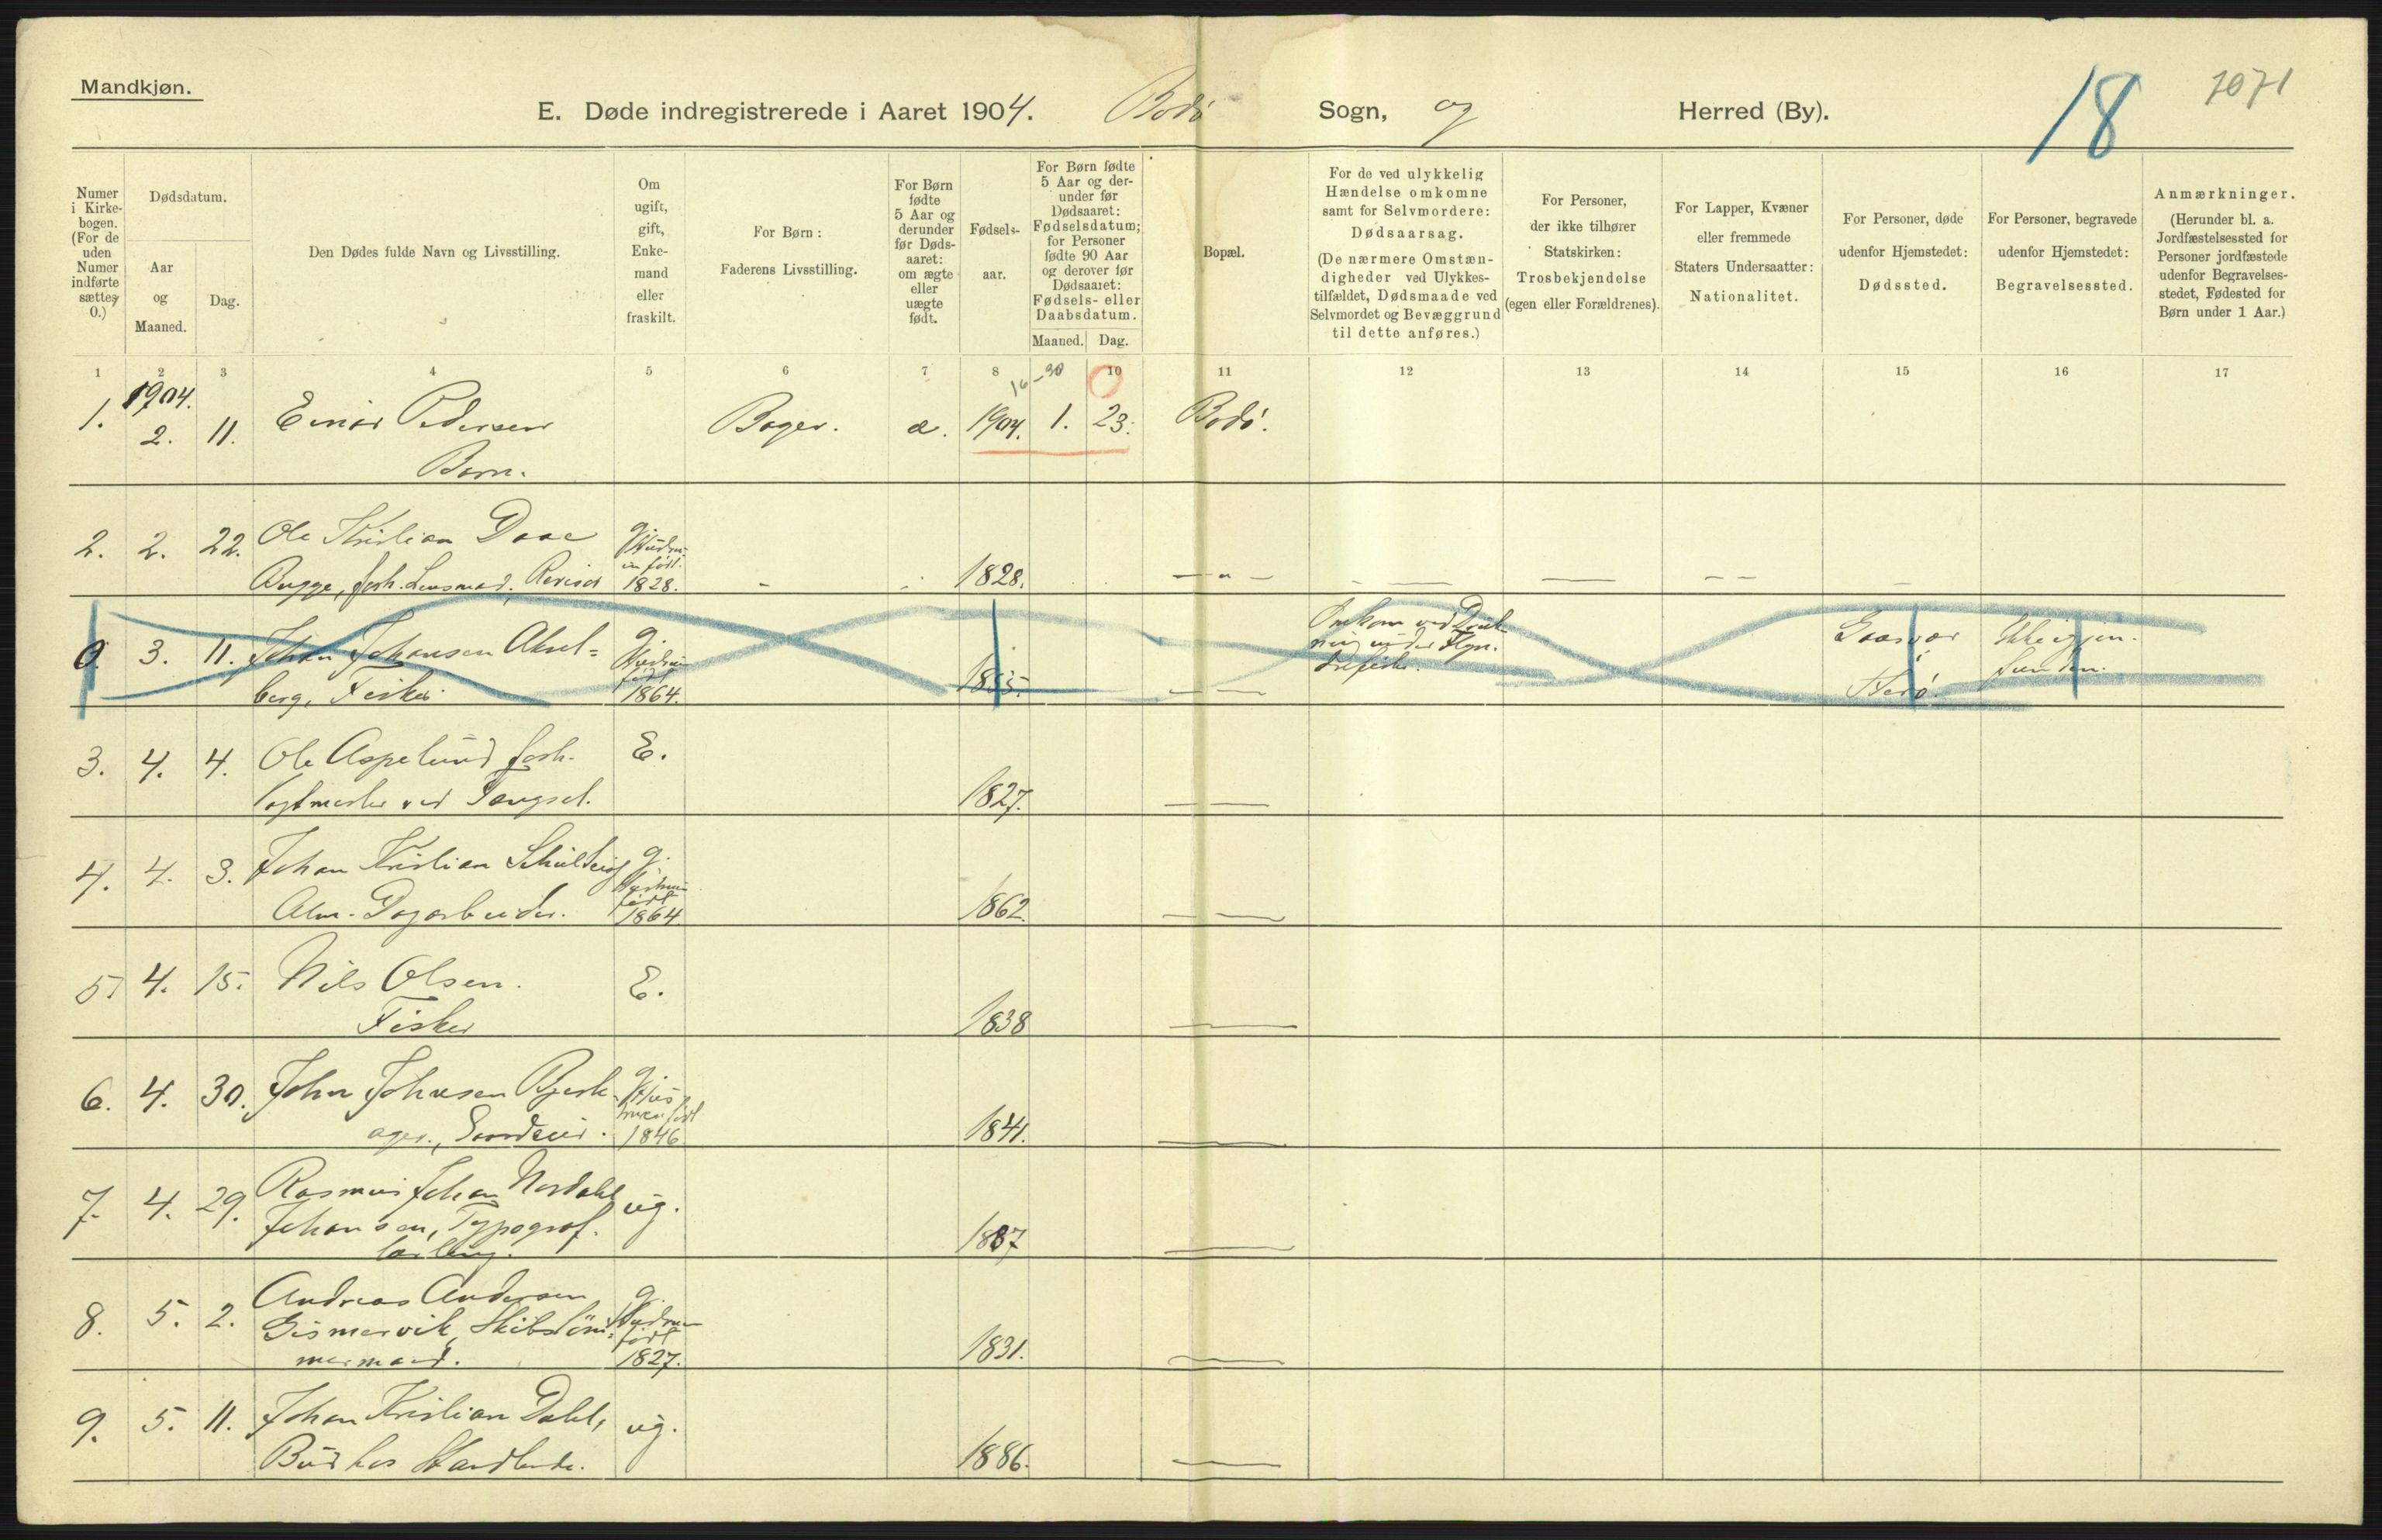 Mandkjøn.
E. Døde indregistrerede i Aaret 1904. Bodø Sogn, og Herred (By).
18
1071
Numer i Kirkebogen. (For de uden Numer indførte sættes 0.)
Dødsdatum.
Aar og Maaned.
Dag.
Den Dødes fulde Navn og Livsstilling.
Om ugift, gift, Enkemand eller fraskilt.
For Børn:
Faderens Livsstilling.
For Børn fødte 5 Aar og derunder før Dødsaaret: om ægte eller uægte født.
Fødselsaar.
For Børn fødte 5 Aar og derunder før Dødsaaret: Fødselsdatum; for Personer fødte 90 Aar og derover før Dødsaaret: Fødsels- eller Daabsdatum.
Maaned. Dag.
Bopæl.
For de ved ulykkelig Hændelse omkomne samt for Selvmordere: Dødsaarsag.
(De nærmere Omstændigheder ved Ulykkestilfældet, Dødsmaade ved Selvmordet og Bevæggrund til dette anføres.)
For Personer, der ikke tilhører Statskirken: Trosbekjendelse (egen eller Forældrenes).
For Lapper, Kvæner eller fremmede Staters Undersaatter: Nationalitet.
For Personer, døde udenfor Hjemstedet: Dødssted.
For Personer, begravede udenfor Hjemstedet: Begravelsessted.
Anmærkninger.
(Herunder bl. a. Jordfæstelsessted for Personer jordfæstede udenfor Begravelsesstedet, Fødested for Børn under 1 Aar.)
1 2 3 4 5 6 7 8 9 10 11 12 13 14 15 16 17
1. 1904. 2. 11. Einar Pedersen Bager. æ. 1904. 1. 23. Bodø.
Barn.
2. 2. 22. Ole Kristian Daae g. Hustruen født
Bugge, forh. Lensmand, Revisor 1828. 1828. — " —
0. 3. 11. Johan Johansen Aksel= g. Hustruen født Omkom ved Drukning under Gaasvær Ikke igjen-
berg, Fisker. 1864. 1855. — — Herø. funden.
3. 4. 4. Ole Aspelund forh. E.
Vagtmester ved Fængsel. 1827. — —
4. 4. 3. Johan Kristian Schulteis g. Hustruen født
Alm. Dagarbeider. 1864. 1862. — —
5. 4. 15. Nils Olsen. E.
Fisker 1838 ——
6. 4. 30. John Johnsen Bjerk- g. Hustruen født
ager, Gaardeier. 1846. 1841. ——
7. 4. 29. Rasmus Johan Nordahl ug.
Johansen, Typograf- 1887 ——
lærling.
8. 5. 2. Andreas Andersen g. Hustruen
Gismervik, Skibstøm= født
mermand. 1827. 1831. ——
9. 5. 11. Johan Kristian Dahl, ug.
Bud hos Handlende. 1886. ——